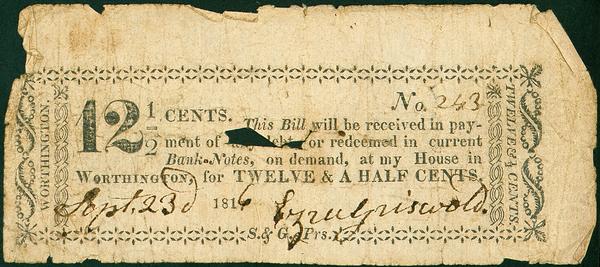 No. 243
12 1/2 CENTS. This Bill will be received in pay-
ment of any debt, or redeemed in current
Bank-Notes, on demand, at my House in
WORTHINGTON, for TWELVE & A HALF CENTS.
Sept. 23d 1816 Ezra Griswold.
S. & G. Prs.
WORTHINGTON.
TWELVE & ½ CENTS